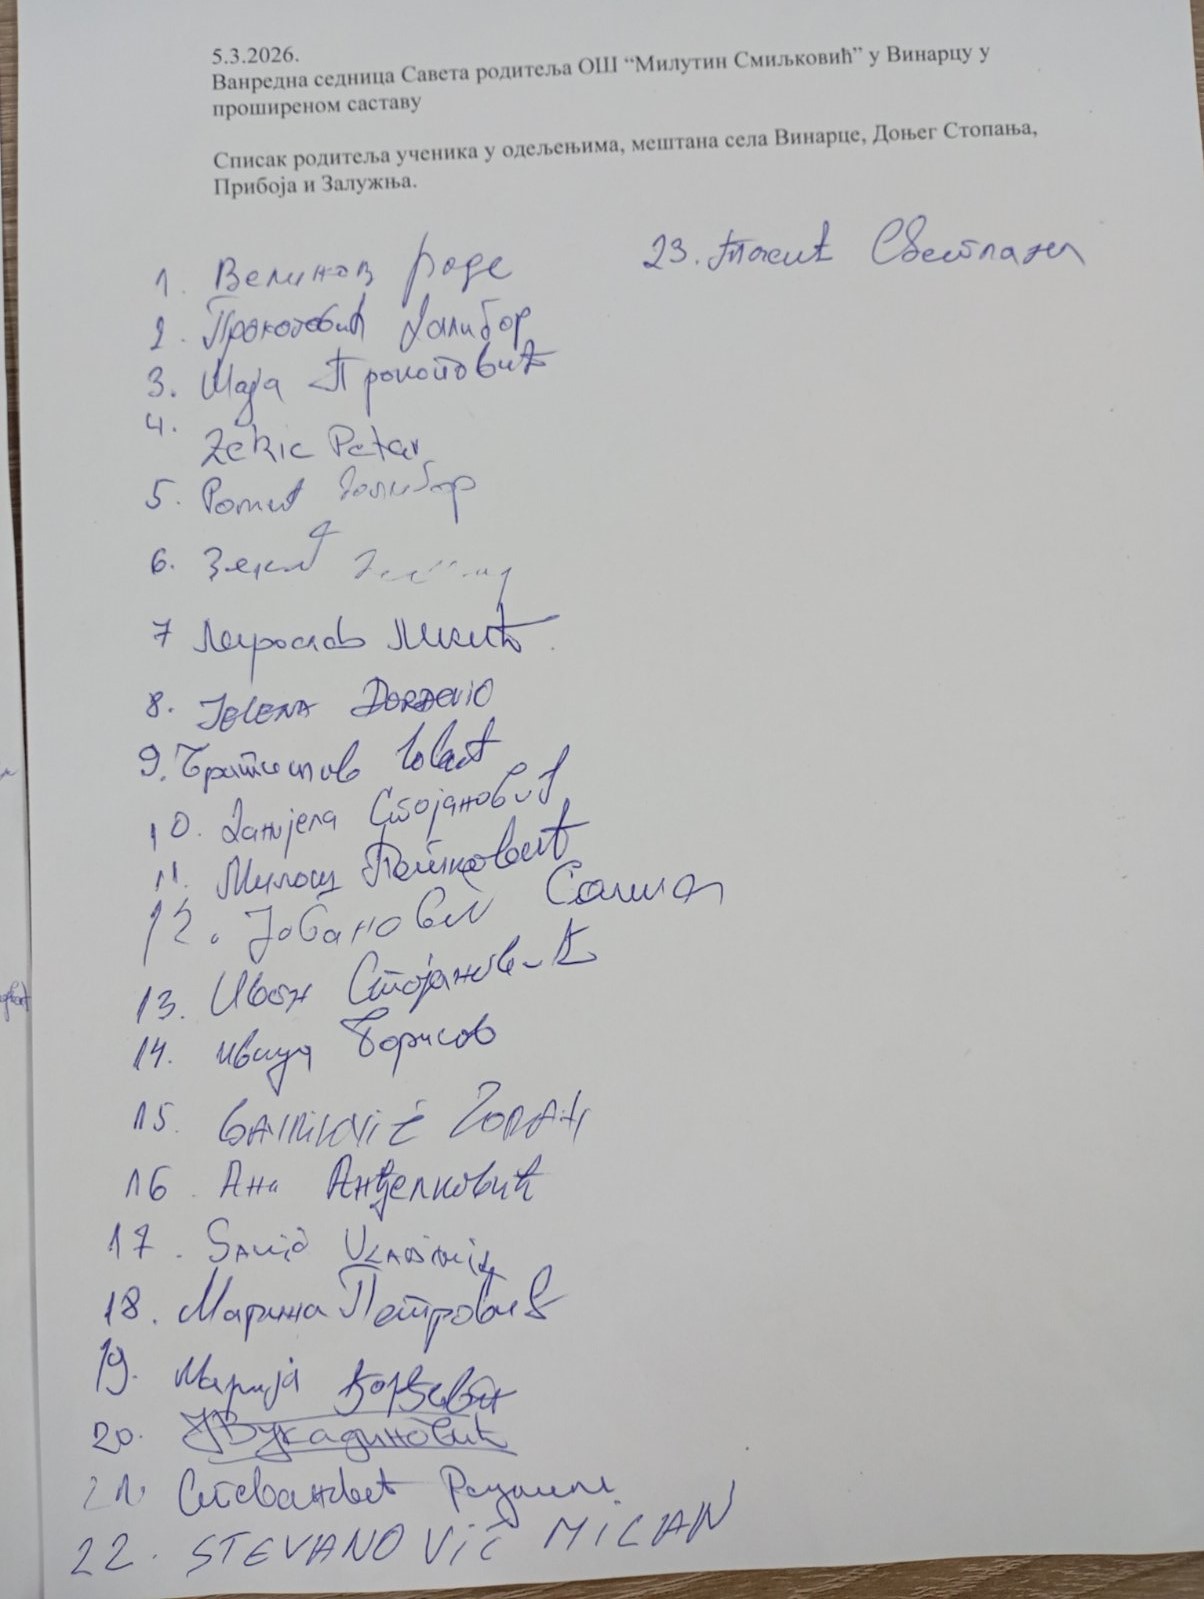 5.3.2026.
Ванредна седница Савета родитеља ОШ “Милутин Смиљковић” у Винарцу у
проширеном саставу
Списак родитеља ученика у одељењима, мештана села Винарце, Доњег Стопања,
Прибоја и Залужња.
1. Велинов Раде
2. Прокоповић Далибор
3. Маја Прокоповић
4. Zekic Petar
5. Далибор
6.
7 Мирослав Микић
8. JELENA ĐORĐEVIĆ
9. Братислав
10. Данијела Стојановић
11. Милош
12. Јовановић Саша
13. Иван Стојановић
14. Ивица Борисов
15. ZORAN
16. Ана Анђелковић
17. SAVIĆ VLADIMIR
18. Марина Петровић
19. Марија Ђорђевић
20. Вукадиновић
21. Стевановић
22. STEVANOVIĆ MILAN
23. Тасић Светлана